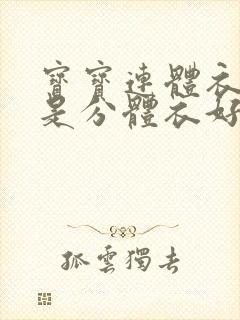 寶寶連體衣
是分體衣好
孤雲獨去